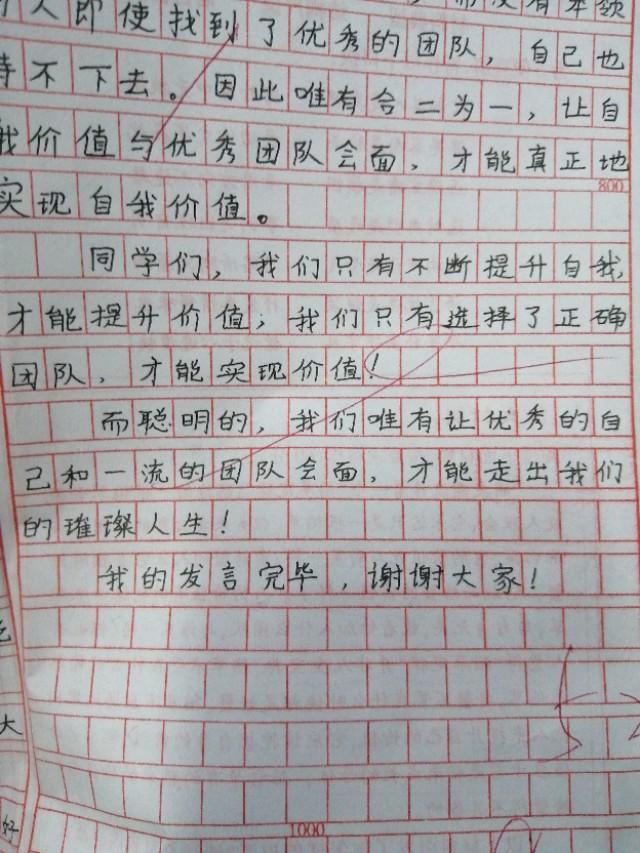 人即使找到了优秀的团队，自己也
待不下去。因此唯有合二为一，让自
我价值与优秀团队会面，才能真正地
800
实现自我价值。
同学们，我们只有不断提升自我，
才能提升价值；我们只有选择了正确
团队，才能实现价值！
而聪明的，我们唯有让优秀的自
己和一流的团队会面，才能走出我们
的璀璨人生！
我的发言完毕，谢谢大家！
大
好
1000